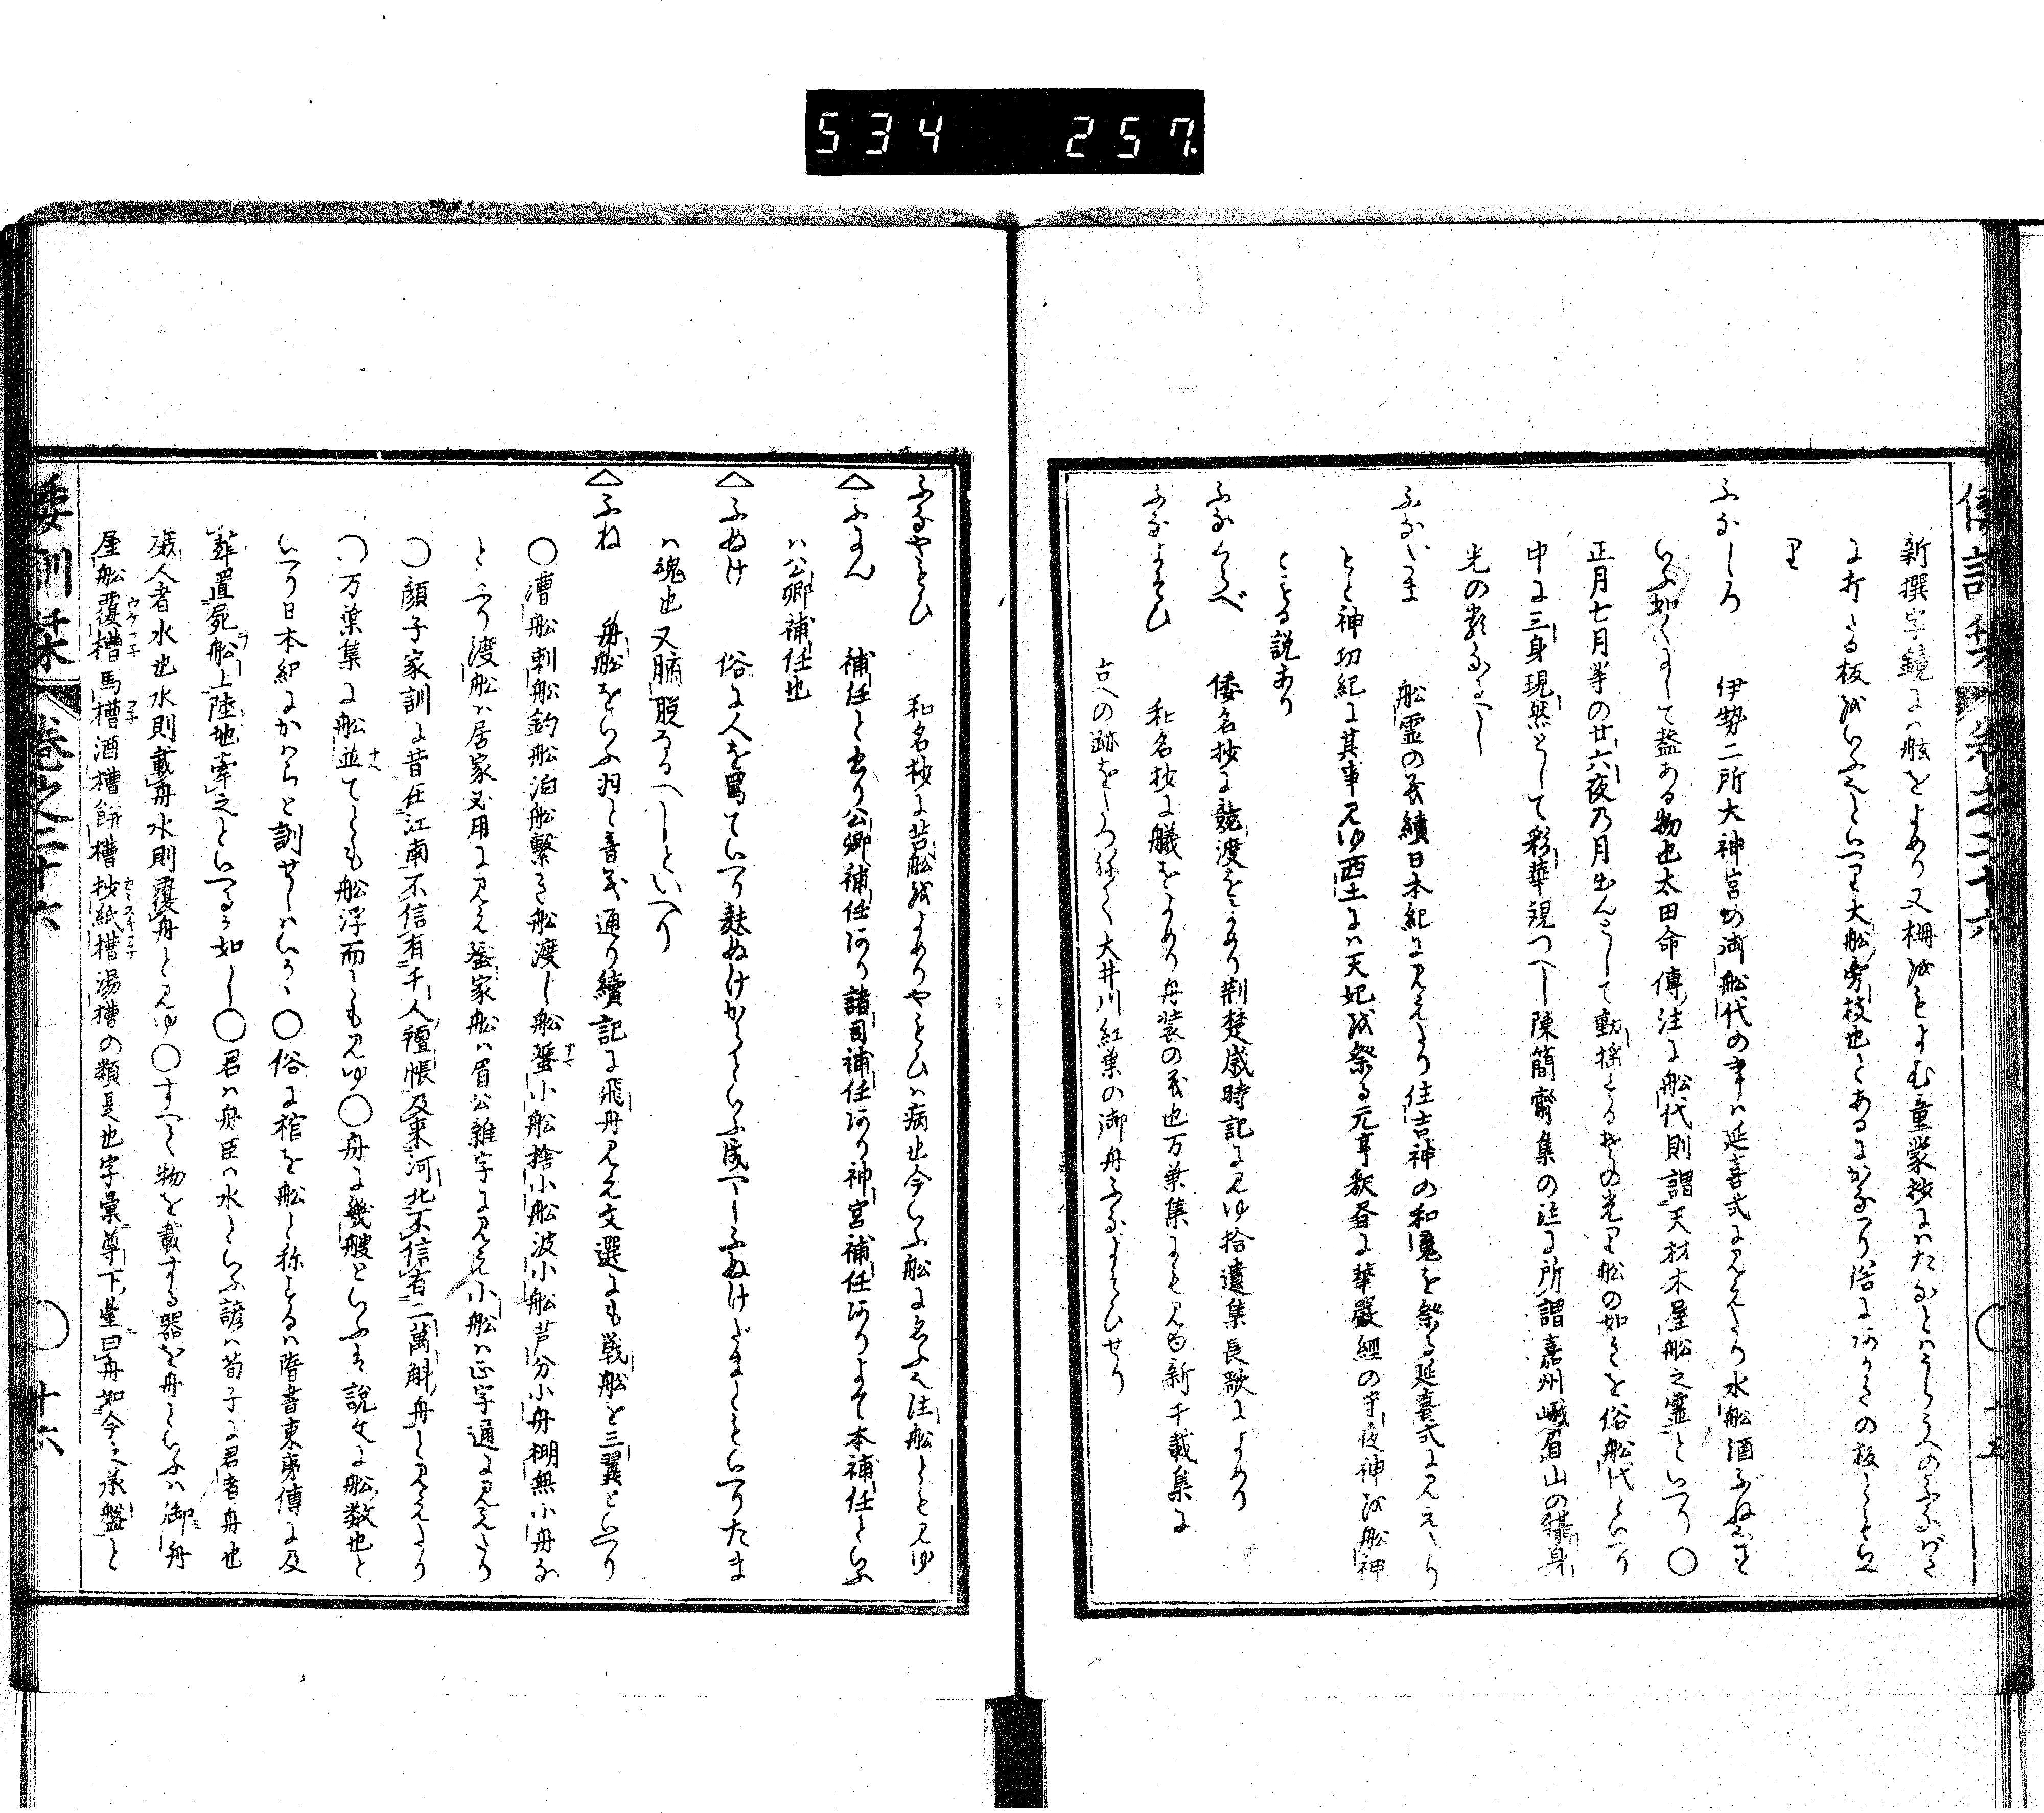 534 257
新撰字鏡に舷をよめり又柵をもよむ童蒙抄にはたなとはうらうへのふなばた
に打たる板をいふといへり大船旁板也とあるにかなへり俗にの板ともいへ
り
ふなしろ 伊勢二所大神宮の御船代の事は延喜式に見えたり水船酒ぶねなど
いふ如くにして蓋ある物也太田命傳注に船代則謂天材木屋船之靈といへり〇
正月七月等の廿六夜の月出んとして動揺するその光り船の如きを俗船代といへり
中に三身現然として彩華視つへし陳簡齋集の注に所謂嘉州峨眉山の攝身
光の類なるへし
ふなだま 船霊の義續日本紀に見えたり住吉神の和魂を祭る延喜式に見えたり
とと神功紀に其事見ゆ西土には天妃を祭る元亨釈書に華嚴經の守夜神を船神
とする説あり
ふなくらべ 倭名抄に競渡をよめり荆楚歳時記に見ゆ拾遺集長歌によめり
ふなよそひ 和名抄に艤をよめり舟装の義也万葉集にも見ゆ新千載集に
古への跡をしつねく大井川紅葉の御舟ふなよそひせり
ふなやまひ 和名抄に苦船をよめりやまひは病也今いふ船にゑふ也注船とも見ゆ
△ふにん 補任と書り公卿補任あり諸司補任あり神宮補任ありよて本補任といふ
は公卿補任也
△ふぬけ 俗に人を罵ていへり麩ぬけかすといふ成へしふぬけだましともいへりたま
は魂也又腑脱なるへしといへり
△ふね 舟船をいふ羽と音義通り續記に飛舟見え文選にも戦船を三翼といへり
〇漕船刺船釣船泊船繋き船渡し船蜑小船捨小船波小船芦分小舟棚無小舟な
といへり渡船は居家必用に見え蜑家船は眉公雑字に見え小船は正字通に見えたり
〇顔子家訓に昔在江南不信有千人氊帳及来河北不信有二萬斛舟と見えたり
〇万葉集に船並てとも船浮而しも見ゆ〇舟に幾艘といふは説文に船数也と
いへり日本紀にかはらと訓せしはいかゝ〇俗に棺を船と称するは隋書東夷傳に及
葬置屍船上陸地牽之といへるか如し〇君は舟臣は水といふ諺は荀子に君者舟也
庶人者水也水則載舟水則覆舟と見ゆ〇すへて物を載する器を舟といふは御舟
屋船覆槽馬槽酒槽餅槽抄紙槽湯槽の類是也字彙尊下臺曰舟如今之承盤と
倭訓栞 巻之二十六 〇 十五
倭訓栞 巻之二十六 〇 十六